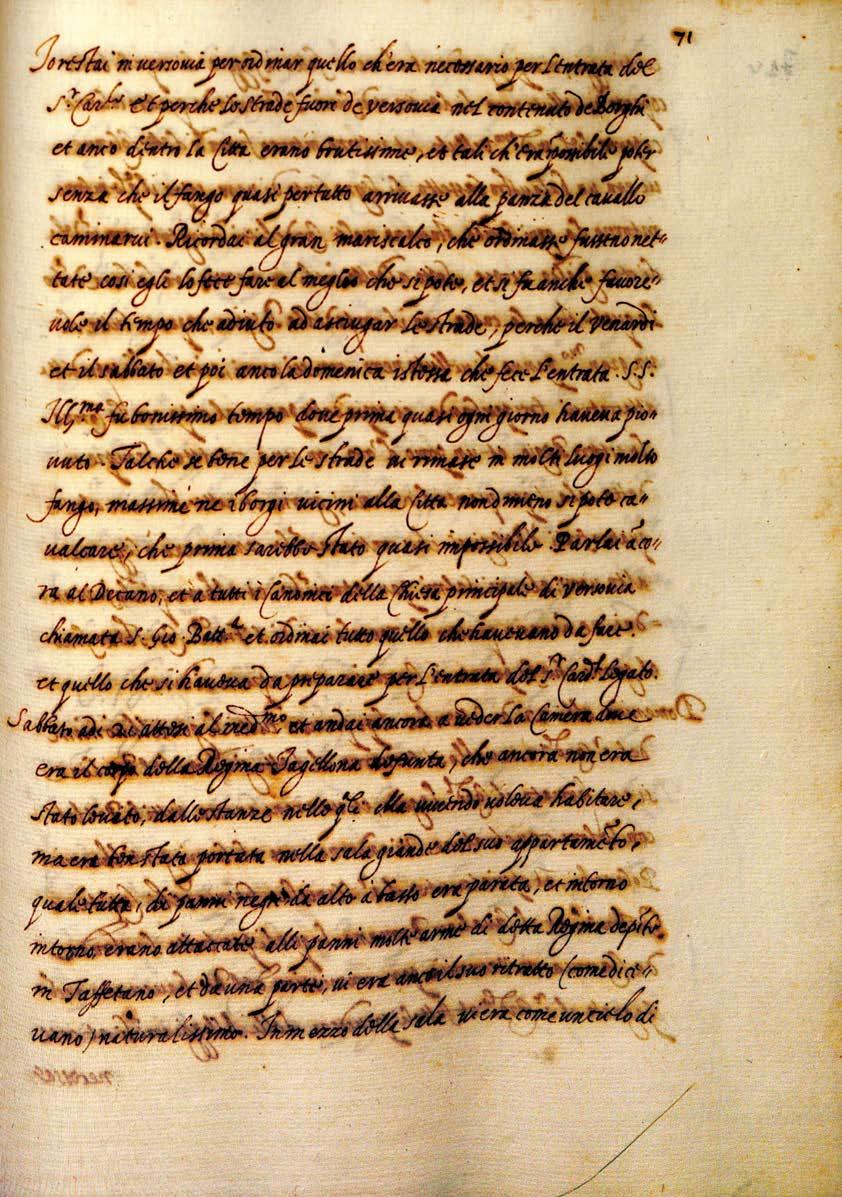 71
Io restai in versovia per ordinar quello ch'era necessario per l'entrata del
S.r Car.le et perche le strade fuori de versovia nel contenuto de Borghi
et anco dentro la Citta erano brutissime, et tali ch'era impossibile poter
senza che il fango quasi per tutto arrivasse alla panza del cavallo
caminarui. Ricordai al gran mariscalco, che ordinasse fusseno net=
tate cosi egli lo fece fare al meglio che si pote, et si fu anche fauore=
uole il tempo che adiuto ad asciugar le strade, perche il Venardi
et il sabbato et poi anco la domenica istessa che fece l'entrata S.S.
Ill.ma fu bonissimo tempo doue prima quasi ogni giorno haueua pio=
uuto. Talche se bene per le strade ui rimase in molti luogi molto
fango, massime ne i borgi vicini alla Citta nondimeno si pote ca=
ualcare, che prima sarebbe stato quasi impossibile. Parlai āco=
ra al Decano, et a tutti i Canonici della Chiesa principale di versovia
chiamata S. Gio. Batt.a et ordinai tutto quello che haueuano da fare.
et quello che si haueua da preparare per l'entrata del S.r Card.l legato.
Sabbato adi 21 attesi al med.mo et andai ancora a ueder la Camera doue
era il corpo della Regina Iagellona defunta, che ancora non era
stato leuato, dalle stanze nelle q̄li ella uiuendo voleua habitare,
ma era ben stata portata nella sala grande del suo appartamēto,
quale tutta, di panni negri da alto a basso era parata, et intorno
intorno, erano attaccate alli panni molte arme di detta Regina depīte
in Taffetano, et da una parte, ui era anco il suo ritratto (come dice=
uano) naturalissimo. In mezzo della sala u'era come un cielo di